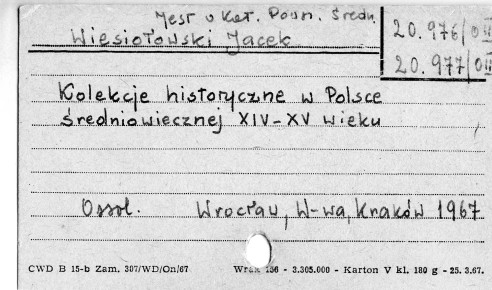 Jest w Kat. Pown. Średn.
Wiesiołowski Jacek
20.976/OII
20.977/OII
Kolekcje historyczne w Polsce
średniowiecznej XIV-XV wieku
Ossol. Wrocław, W-wa, Kraków 1967
CWD B 15-b Zam. 307/WD/On/67 Wrzx 156 - 3.305.000 - Karton V kl. 180 g - 25.3.67.